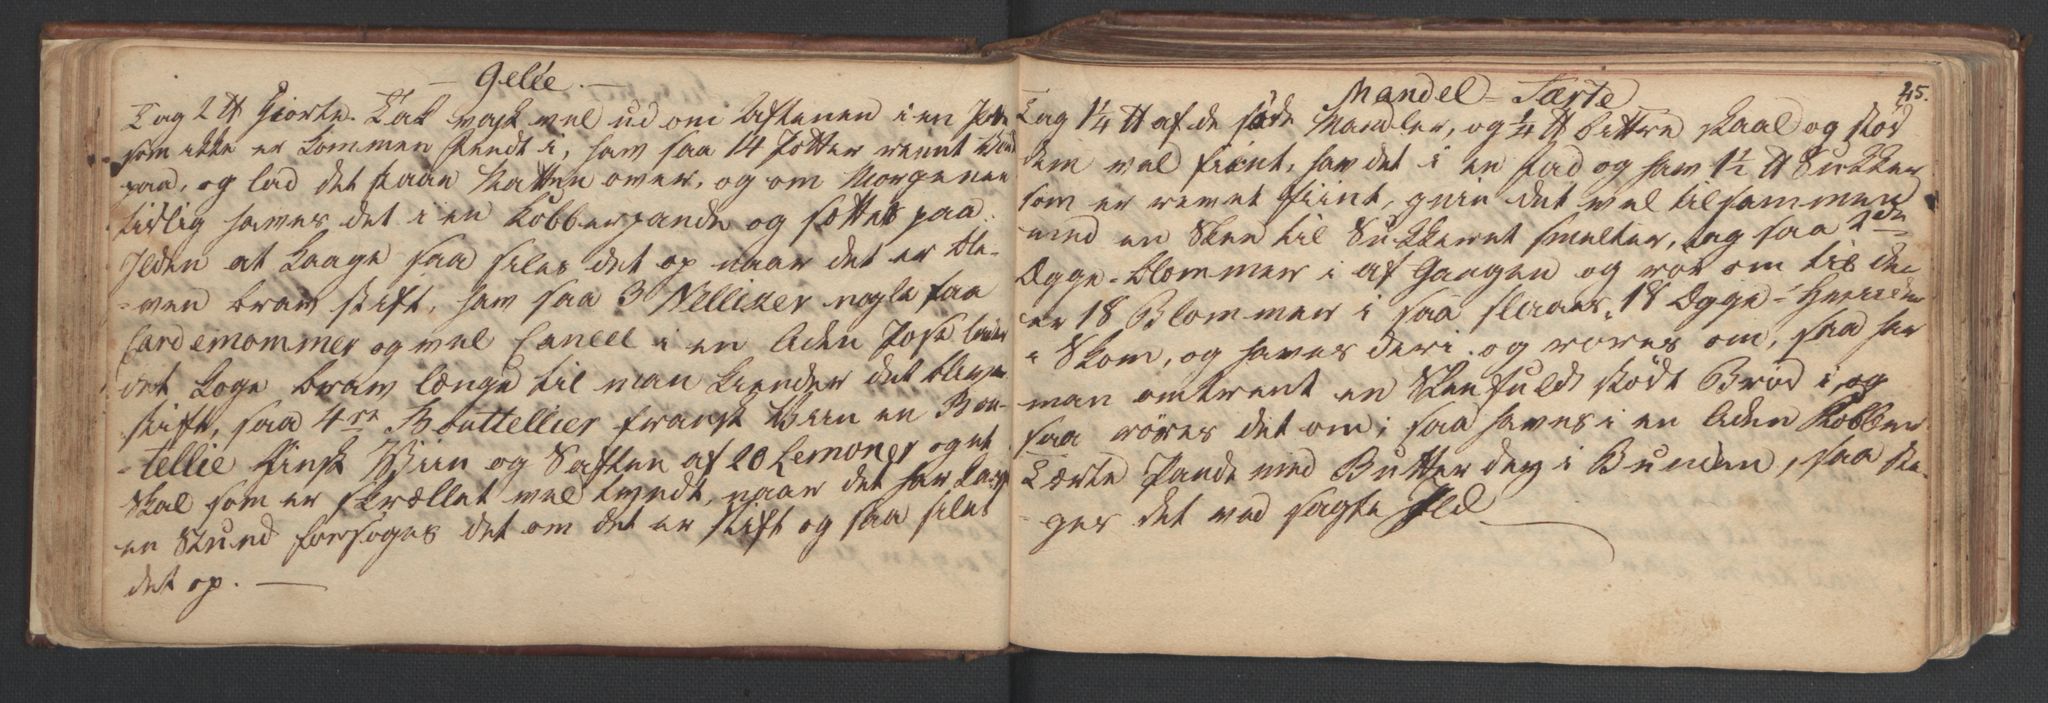 Gelée.
Tag 2 ℔ Hiorte-Tak vask vel ud om Aftenen i en Potte
som ikke er kommen feedt i, hav saa 14 Potter reent Vand
paa, og lad det staae Natten over, og om Morgenen
tidlig haves det i en Kobberpande og sættes paa
Ilden at kaage saa siles det op naar det er ble-
-ven brav stift, hav saa 3 Nelliker nogle faa
Cardemommer og vel Caneel i en liden Pose lad
det koge brav længe til man kiender det bliver
stift, saa 4re Bouttellier fransk Viin en Bou-
-tellie Rinsk Viin og Saften af 20 Lemoner og et
Skal som er skrællet vel tyndt, naar det har kaagt
en Stund forsøges det om det er stift og saa silet
det op.
Mandel-Tærte
45.
Tag 1¼ ℔ af de søde Mandler, og ¼ ℔ bittre skaal og stød
dem vel fiint, hav det i en Fad og hav 1½ ℔ Sukker
som er revet fiint, gnie det vel tilsammen
med en Skee til Sukkeret smelter, tag saa 2de
Ægge-blommer i af Gangen og rør om til der
er 18 Blommer i saa slaaes 18 Ægge-Hvider
i Skom, og haves deri og røres om, saa har
man omtrent en Skeefuld stødt Brød i og
saa røres det om; saa haves i en liden Kobber
Tærte Pande med Butter dey i Bunden, saa ste-
-ges det ved sagte Ild